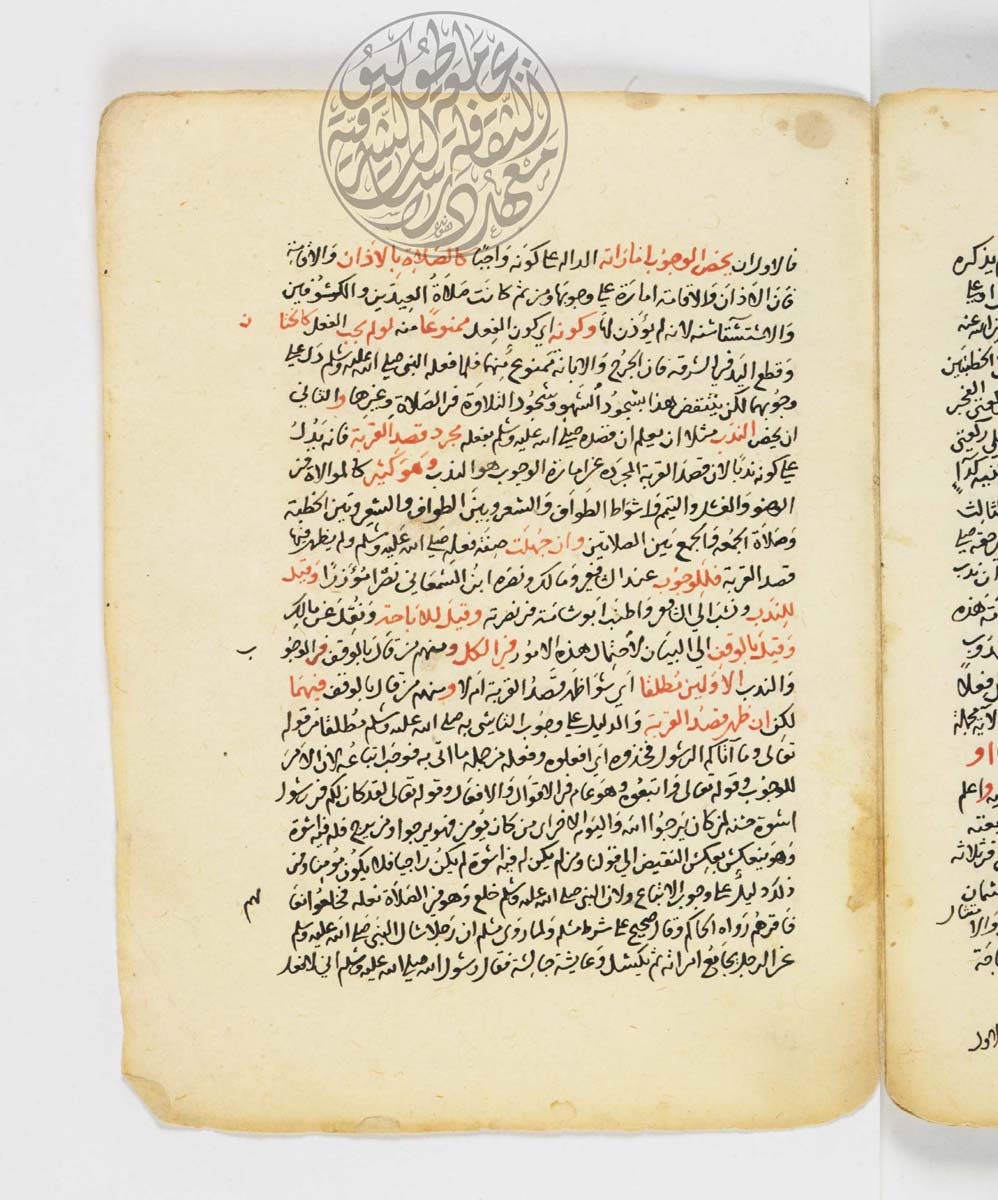 معهد الثقافة والدراسات الشرقية جامعة طوكيو
فالاول ان يخص الوجوب امارات الدالة على كونه واجبا كالصلاة بالاذان والاقامة
فان الاذان والاقامة امارة على وجوبها ومن ثم كانت صلاة العيدين والكسوفين
والاستسقا سنة لانه لم يؤذن لها وكونه اي كون الفعل ممنوعا منه لو لم يجب الفعل كالختان
وقطع اليد في السرقة فان الجرح والابانة ممنوع منهما فلما فعله النبي صلى الله عليه وسلم دل على
وجوبهما لكن ينتقض هذا بسجود السهو وسجود التلاوة في الصلاة وغيرها والثاني
ان يخص الندب مثلا ان يعلم ان قصده صلى الله عليه وسلم بفعله مجرد قصد القربة فانه يدل
على كونه ندبا لان قصد القربة المجردة عن امارة الوجوب هو الندب وهو كثير كالموالاة في
الوضو والغسل والتيمم واشواط الطواف والسعي وبين الطواف والسعي وبين الخطبة
وصلاة الجمعة والجمع بين الصلاتين وان جهلت صفة فعله صلى الله عليه وسلم ولم يظهر فيها
قصد القربة فللوجوب عند الشافعي ومالك ونصره ابن السمعاني نصرا مؤزرا وقيل
للندب ونسب الي الشافعي واطنب ابو شامة في نصرته وقيل للاباحة ونقل عن مالك
وقيل بالوقف الي البيان لاحتمال هذه الامور في الكل ومنهم من قال بالوقف في الوجوب
والندب الاولين مطلقا اي سوا ظهر قصد القربة ام لا ومنهم من قال بالوقف فيهما
لكن ان ظهر قصد القربة والدليل على وجوب التاسي به صلى الله عليه وسلم مطلقا من قوله
تعالى وما آتاكم الرسول فخذوه اي افعلوه وفعله من جملة ما اتى به فوجب اتباعه لان الامر
للوجوب وقوله تعالى واتبعوه وهو عام في الاقوال والافعال وقوله تعالى لقد كان لكم في رسول
اسوة حسنة لمن كان يرجوا الله واليوم الاخر اي من كان يؤمن فهو يرجوا ومن يرج فله فيه اسوة
وهو ينعكس بعكس النقيض الي قولنا ومن لم يكن له فيه اسوة لم يكن راجيا فلا يكون مومنا وفي
ذلك دليل على وجوب الاتباع ولان النبي صلى الله عليه وسلم خلع وهو في الصلاة نعله فخلعوا نعالهم
فاقرهم رواه الحاكم وقال صحيح على شرط مسلم ولما روى مسلم ان رجلا سال النبي صلى الله عليه وسلم
عن الرجل يجامع امراته ثم يكسل وعايشة جالسة فقال رسول الله صلى الله عليه وسلم اني لافعل